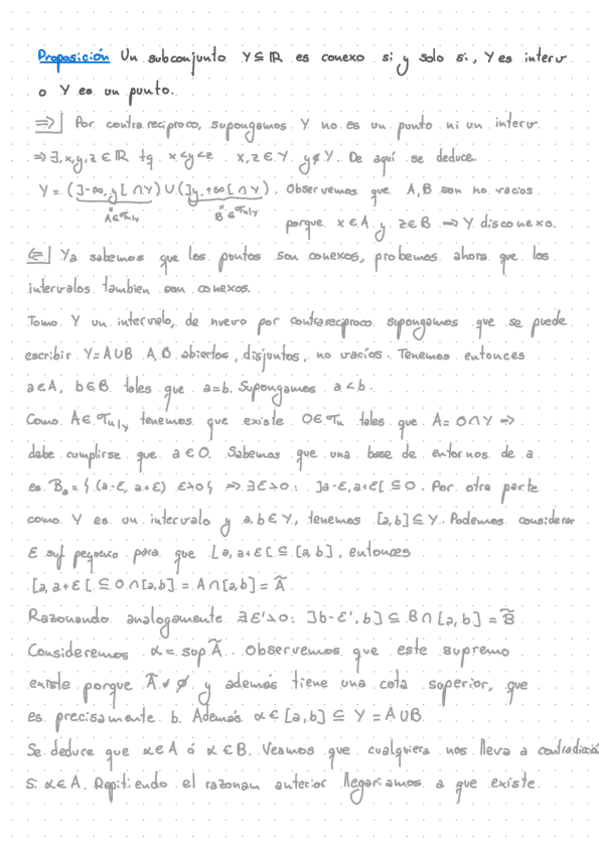 Proposición Un subconjunto Y⊆ℝ es conexo si y solo si, Y es interv
o Y es un punto.
⇒| Por contrareciproco, supongamos Y no es un punto ni un interv.
⇒ ∃, x,y,z ∈ ℝ tq x<y<z x,z ∈ Y y∉Y. De aquí se deduce.
Y = (]-∞,y[ ∩Y) ∪ (]y,+∞[ ∩Y). Observemos que A,B son no vacios
A∈𝒯u|Y B∈𝒯u|Y porque x∈A y z∈B ⇒ Y disconexo.
⇐| Ya sabemos que los puntos son conexos, probemos ahora que los
intervalos tambien son conexos.
Tomo Y un intervalo, de nuevo por contrareciproco supongamos que se puede
escribir Y=A∪B A,B abiertos, disjuntos, no vacíos. Tenemos entonces
a∈A, b∈B tales que a=b. Supongamos a<b.
Como A∈𝒯u|Y tenemos que existe O∈𝒯u tales que A=O∩Y ⇒
debe cumplirse que a∈O. Sabemos que una base de entornos de a
es Ba = { (a-ε, a+ε) ε>0 } ⇒ ∃ε>0: ]a-ε,a+ε[ ⊆ O. Por otra parte
como Y es un intervalo y a,b∈Y, tenemos [a,b]⊆Y. Podemos considerar
ε suf pequeño para que [a,a+ε[ ⊆ [a,b], entonces
[a,a+ε[ ⊆ O∩[a,b] = A∩[a,b] = Ã
Razonando analogamente ∃ε'>0: ]b-ε',b] ⊆ B∩[a,b] = B̃
Consideremos α = sup Ã. Observemos que este supremo
existe porque Ã≠∅ y además tiene una cota superior, que
es precisamente b. Además α∈[a,b] ⊆ Y = A∪B
Se deduce que α∈A ó α∈B. Veamos que cualquiera nos lleva a contradicció
Si α∈A. Repitiendo el razonam anterior llegariamos a que existe